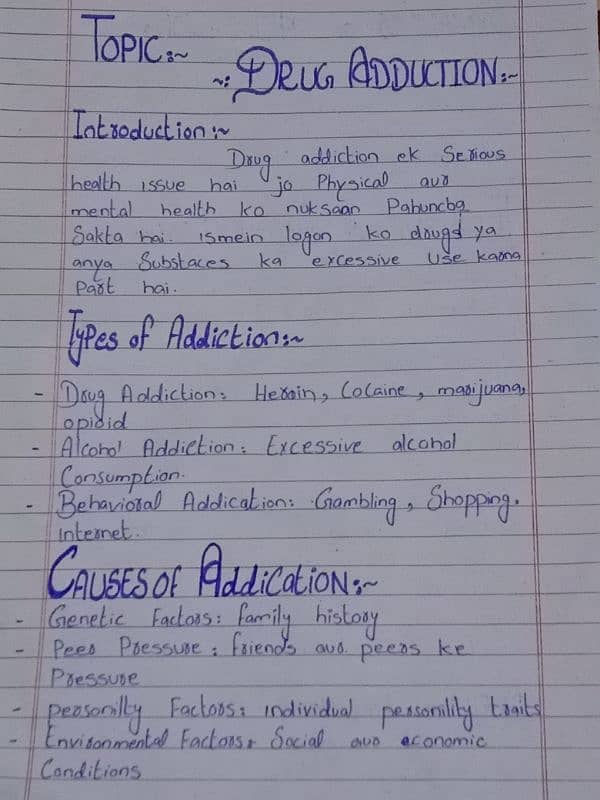 TOPIC:~
~: DRUG ADDUCTION:~
Introduction:~
Drug addiction ek Serious
health issue hai jo Physical aur
mental health ko nuksaan Pahuncha
Sakta hai. ismein logon ko drugd ya
anya Substaces ka excessive use karna
Part hai.
Types of Addiction:~
- Drug Addiction: Heroin, Cocaine, marijuana,
opioid
- Alcohol Addiction: Excessive alcohol
Consumption.
- Behavioral Addication: Gambling, Shopping.
internet.
CAUSES OF Addication:~
- Genetic Factors: family history
- Peer Pressure: friends aur peers ke
Pressure
- personilly Factors: individual personility traits
- Environmental Factors: Social aur economic
Conditions